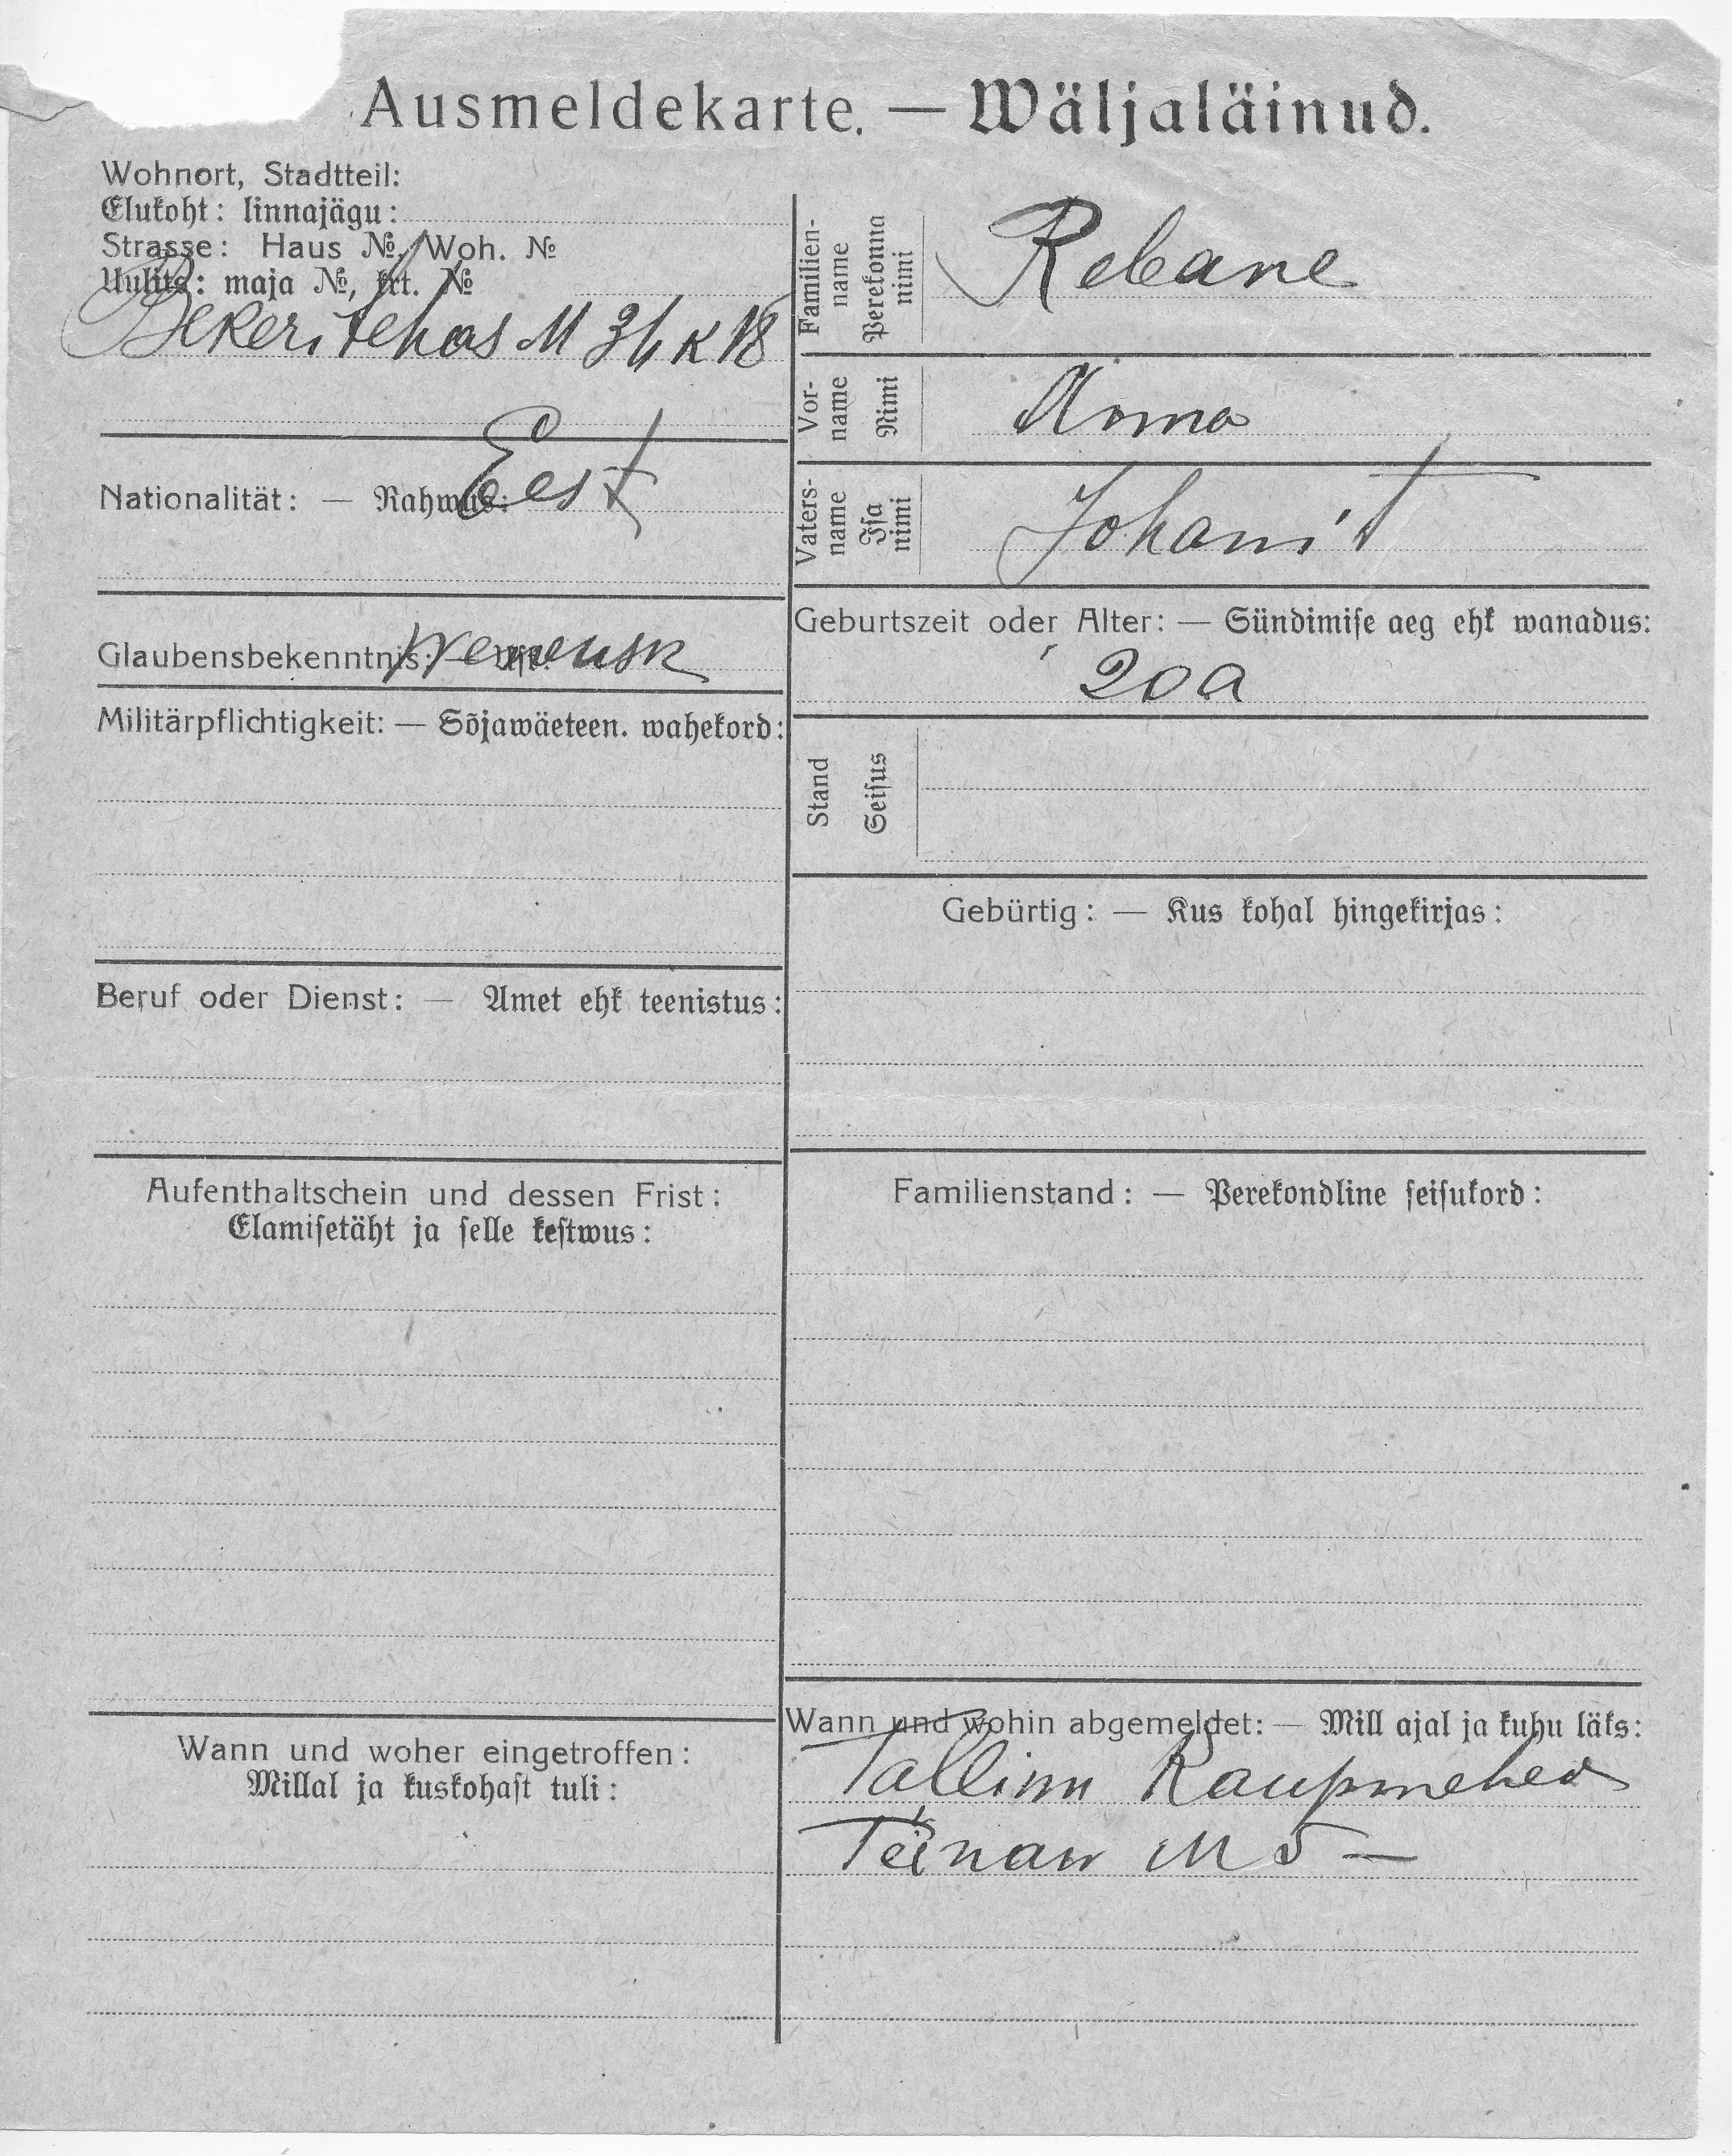 Ausmeldekarte. — Wäljaläinud.
Wohnort, Stadtteil:
Elukoht: linnajägu:
Strasse: Haus №, Woh. №
Uulits: maja №, krt. №
Bekeri tehas M 31 K 18
Nationalität: — Rahwus: Eest
Glaubensbekenntnis: — Usk:
Militärpflichtigkeit: — Sõjawäeteen. wahekord:
Beruf oder Dienst: — Amet ehk teenistus:
Aufenthaltschein und dessen Frist:
Elamiſetäht ja ſelle keſtwus:
Wann und woher eingetroffen:
Millal ja kuskohaſt tuli:
Familien-
name
Perekonna
nimi
Rebane
Vor-
name
Nimi
Anna
Vaters-
name
Iſa
nimi
Johani t
Geburtszeit oder Alter: — Sündimiſe aeg ehk wanadus:
20 a
Stand
Seiſus
Gebürtig: — Kus kohal hingekirjas:
Familienstand: — Perekondline ſeiſukord:
Wann und wohin abgemeldet: — Mill ajal ja kuhu läks:
Tallinn Kaupmehed
M 5 —